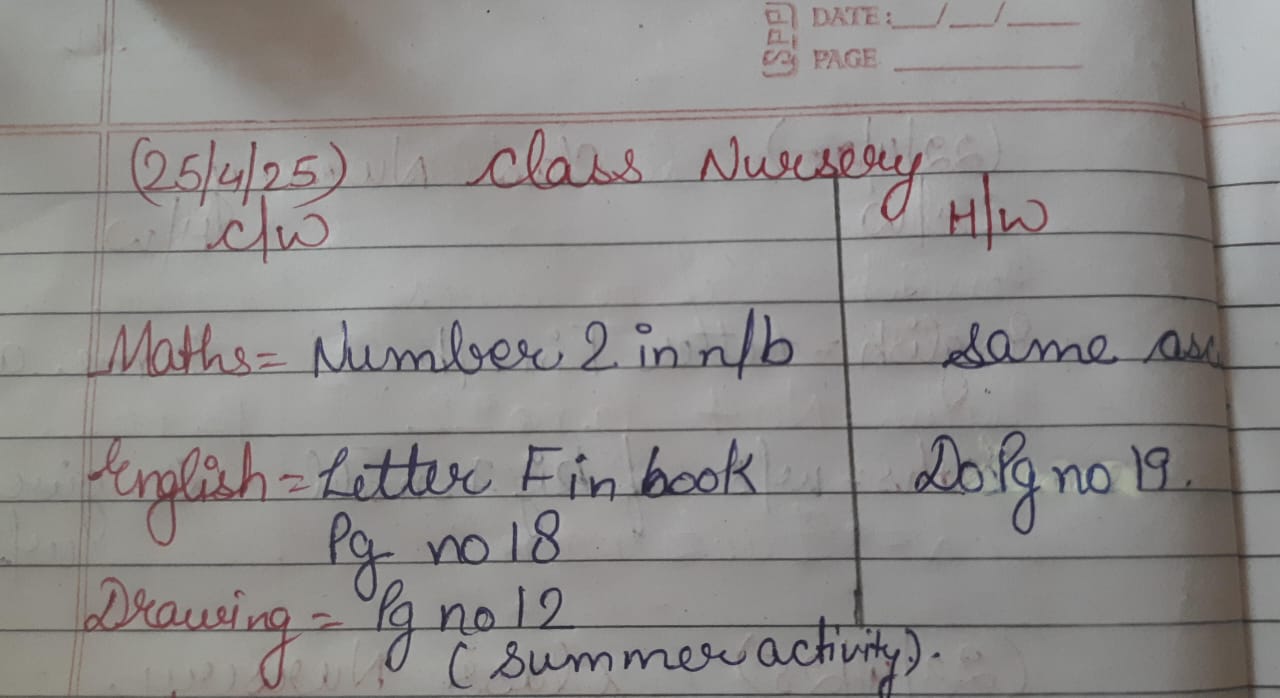 SPP DATE: __/__/____
PAGE ________
(25/4/25) Class Nursery
C/W H/W
Maths = Number 2 in n/b Same as
English = Letter F in book Do Pg no 19.
Pg no 18
Drawing = Pg no 12
(Summer activity).